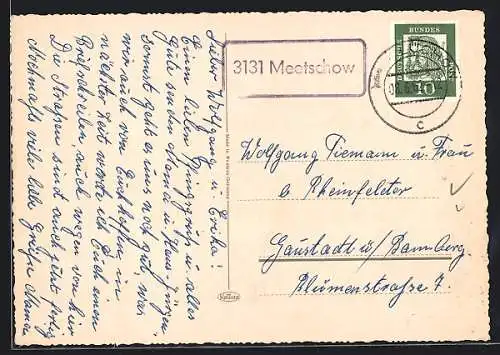 Lieber Wolfgang u. Erika!
Einen lieben Pfingstgruß u. alles
Gute senden Mama u. Hans-Jürgen.
Sonst geht es uns noch gut, was
wir auch von Euch hoffen. In
nächster Zeit werde ich Euch einen
Brief schreiben auch wegen von hier
Die Straßen sind auch jetzt fertig
Nochmals viele liebe Grüße Mama
3131 Meetschow
BUNDES
10
C
Wolfgang Tiemann u. Frau
b. Rheinfelder
Gaustadt b/ Bamberg.
Blumenstraße 7.